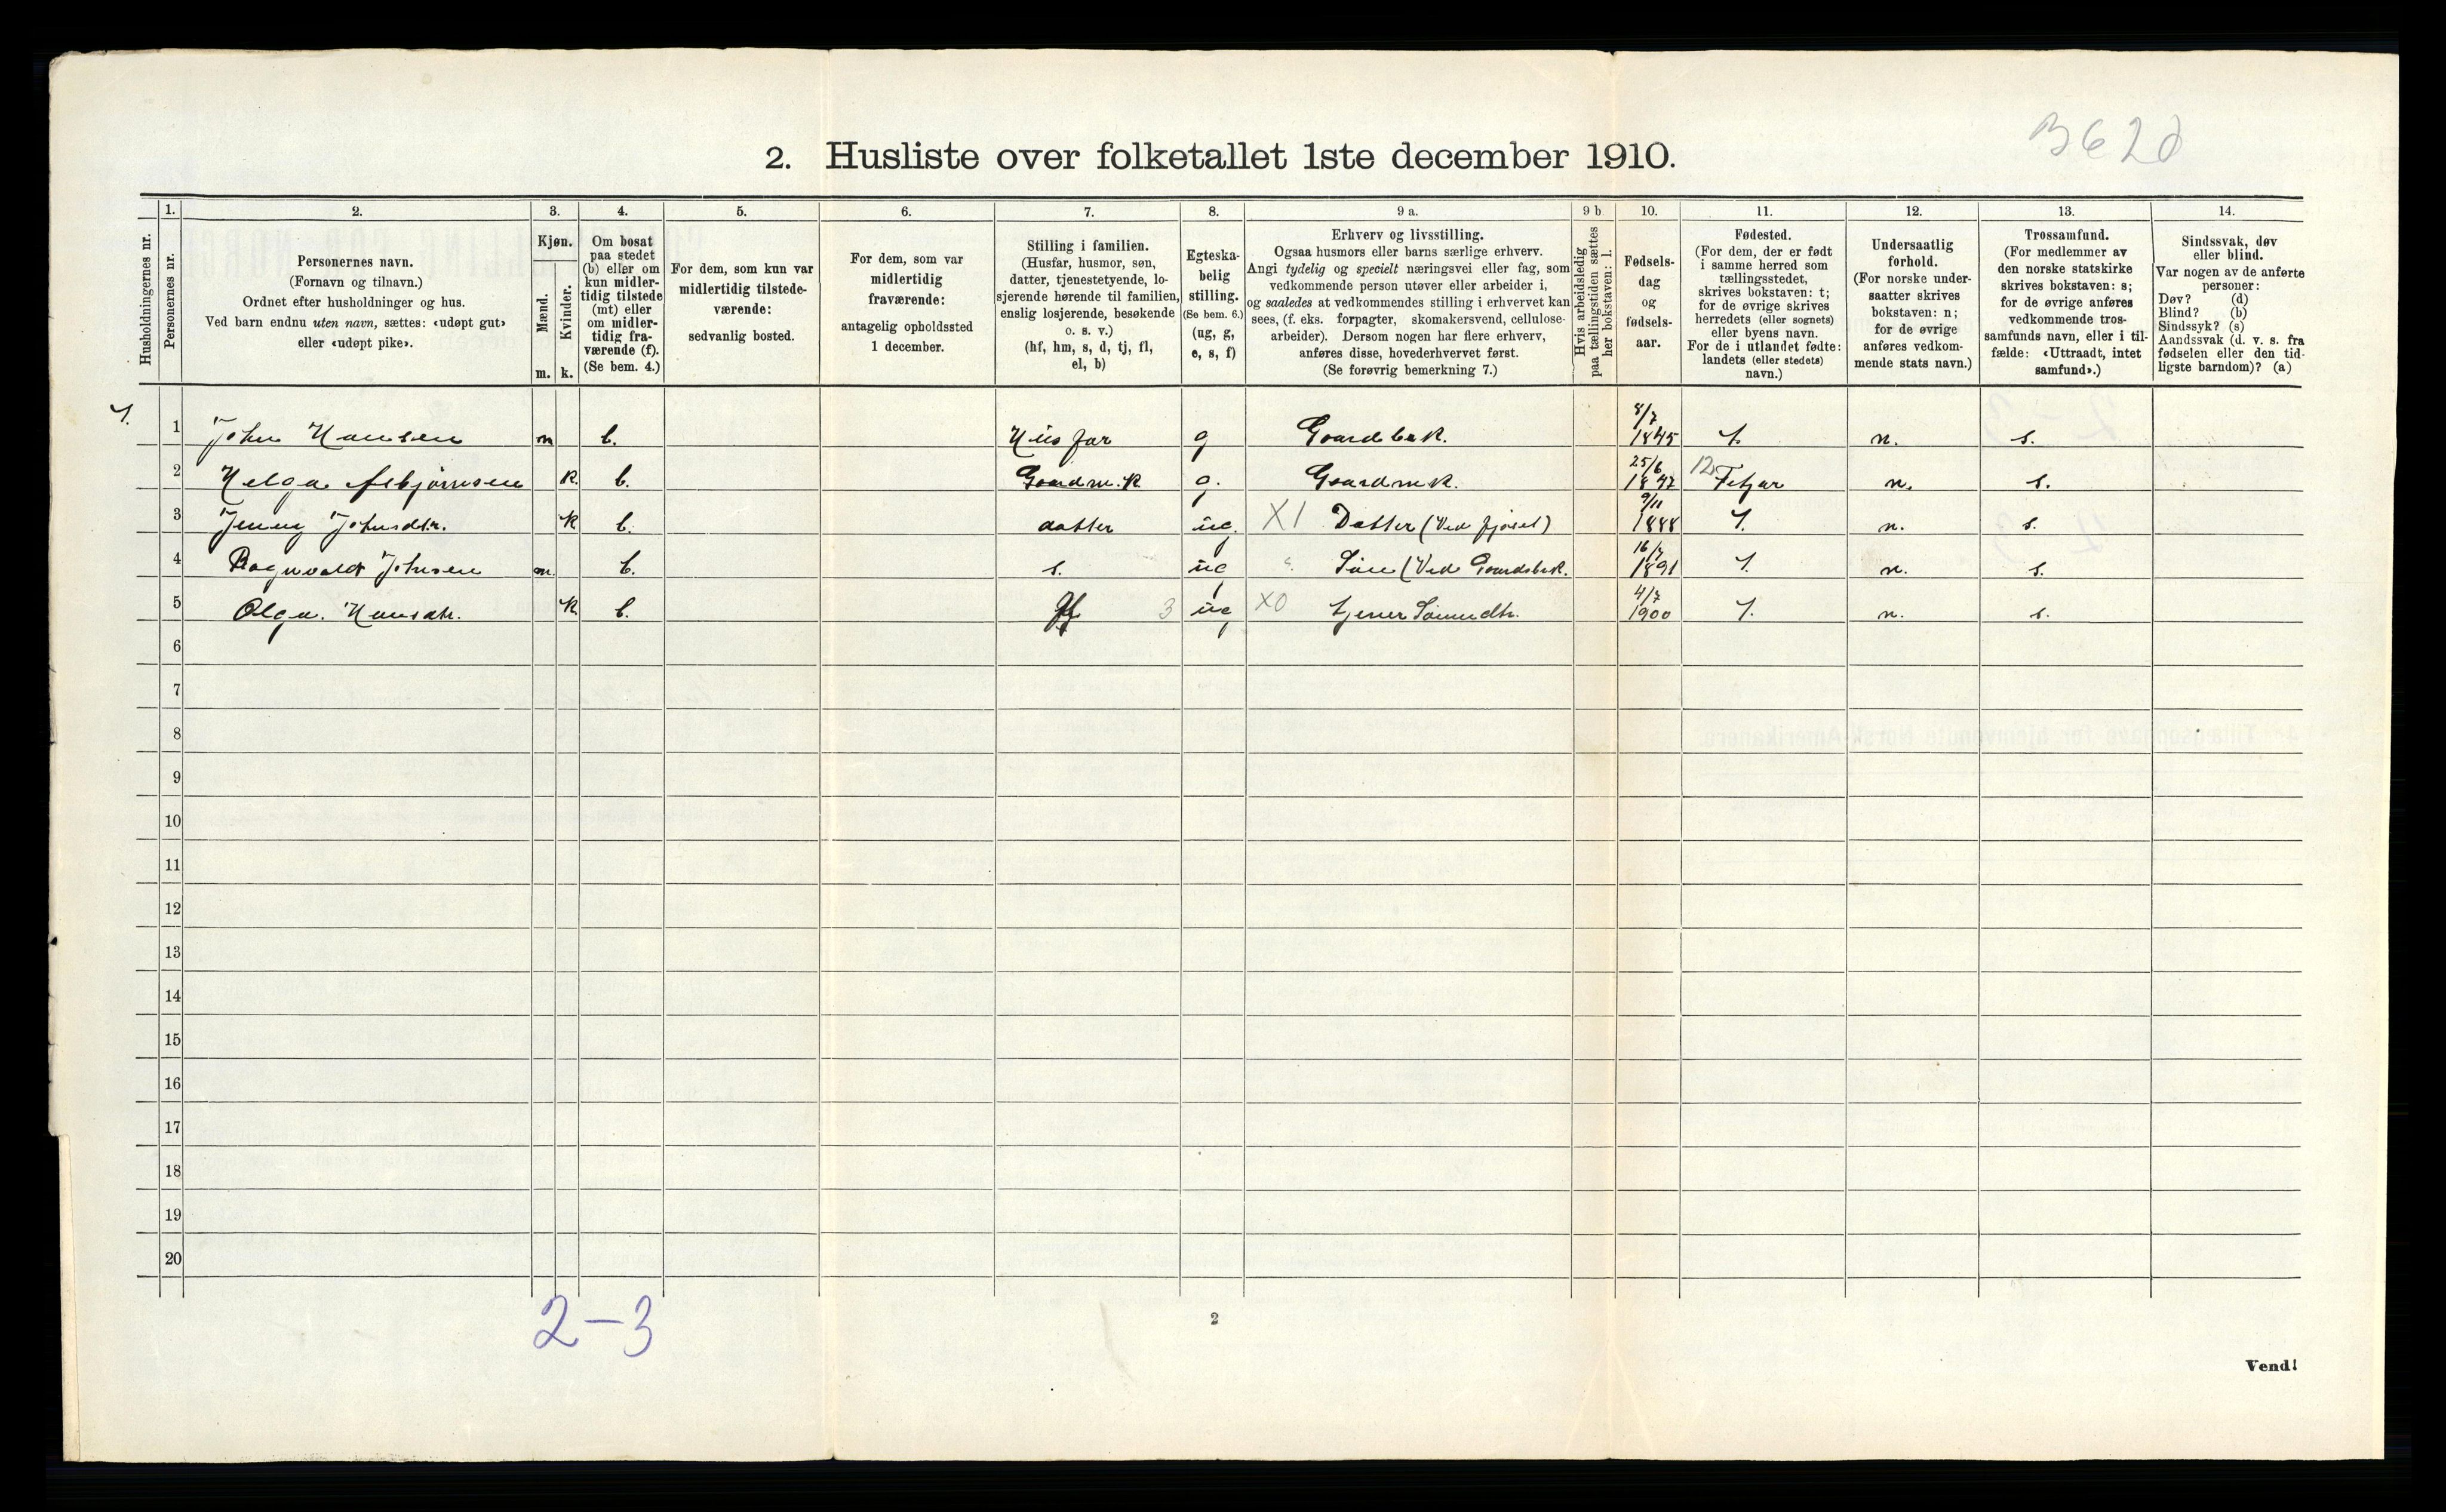 B62d
2. Husliste over folketallet 1ste december 1910.
Husholdningernes nr.
1. Personernes nr.
2. Personernes navn.
(Fornavn og tilnavn.)
Ordnet efter husholdninger og hus.
Ved barn endnu uten navn, sættes: «udøpt gut»
eller «udøpt pike».
3. Kjøn.
Mænd. Kvinder.
m. k.
4. Om bosat
paa stedet
(b) eller om
kun midler-
tidig tilstede
(mt) eller
om midler-
tidig fra-
værende (f).
(Se bem. 4.)
5. For dem, som kun var
midlertidig tilstede-
værende:
sedvanlig bosted.
6. For dem, som var
midlertidig
fraværende:
antagelig opholdssted
1 december.
7. Stilling i familien.
(Husfar, husmor, søn,
datter, tjenestetyende, lo-
sjerende hørende til familien,
enslig losjerende, besøkende
o. s. v.)
(hf, hm, s, d, tj, fl,
el, b)
8. Egteska-
belig
stilling.
(Se bem. 6.)
(ug, g,
e, s, f)
9 a. Erhverv og livsstilling.
Ogsaa husmors eller barns særlige erhverv.
Angi tydelig og specielt næringsvei eller fag, som
vedkommende person utøver eller arbeider i,
og saaledes at vedkommendes stilling i erhvervet kan
sees, (f. eks. forpagter, skomakersvend, cellulose-
arbeider). Dersom nogen har flere erhverv,
anføres disse, hovederhvervet først.
(Se forøvrig bemerkning 7.)
9 b Hvis arbeidsledig
paa tællingstiden sættes
her bokstaven: l.
10. Fødsels-
dag
og
fødsels-
aar.
11. Fødested.
(For dem, der er født
i samme herred som
tællingsstedet,
skrives bokstaven: t;
for de øvrige skrives
herredets (eller sognets)
eller byens navn.
For de i utlandet fødte:
landets (eller stedets)
navn.)
12. Undersaatlig
forhold.
(For norske under-
saatter skrives
bokstaven: n;
for de øvrige
anføres vedkom-
mende stats navn.)
13. Trossamfund.
(For medlemmer av
den norske statskirke
skrives bokstaven: s;
for de øvrige anføres
vedkommende tros-
samfunds navn, eller i til-
fælde: «Uttraadt, intet
samfund».)
14. Sindssvak, døv
eller blind.
Var nogen av de anførte
personer:
Døv? (d)
Blind? (b)
Sindssyk? (s)
Aandssvak (d. v. s. fra
fødselen eller den tid-
ligste barndom)? (a)
1 John Hansen m b. Husfar g Gaardbrk. 8/7 1845 t. n. s.
2 Helga Asbjørnsen k. b. Gaardm.k g. Gaardmk. 25/6 1847 12 Fitjar n. s.
3 Jenny Johnsdtr. k b. datter ug. X1 Datter (Ved fjøset) 9/11 1888 t. n. s.
4 Ragnvald Johnsen m. b. s. ug Søn (Ved Gaardsbrk. 16/7 1891 t. n. s.
5 Olga. Hansdtr. k b. 3 ug X0 4/7 1900 t. n. s.
6
7
8
9
10
11
12
13
14
15
16
17
18
19
20
2-3
2
Vend!